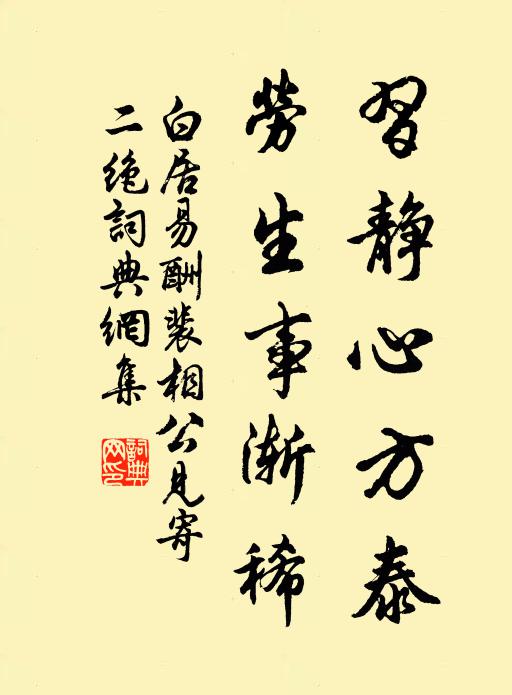 習靜心方泰
勞生事漸稀
白居易酬裴相公見寄
二絶詞典網集
詞典
网印